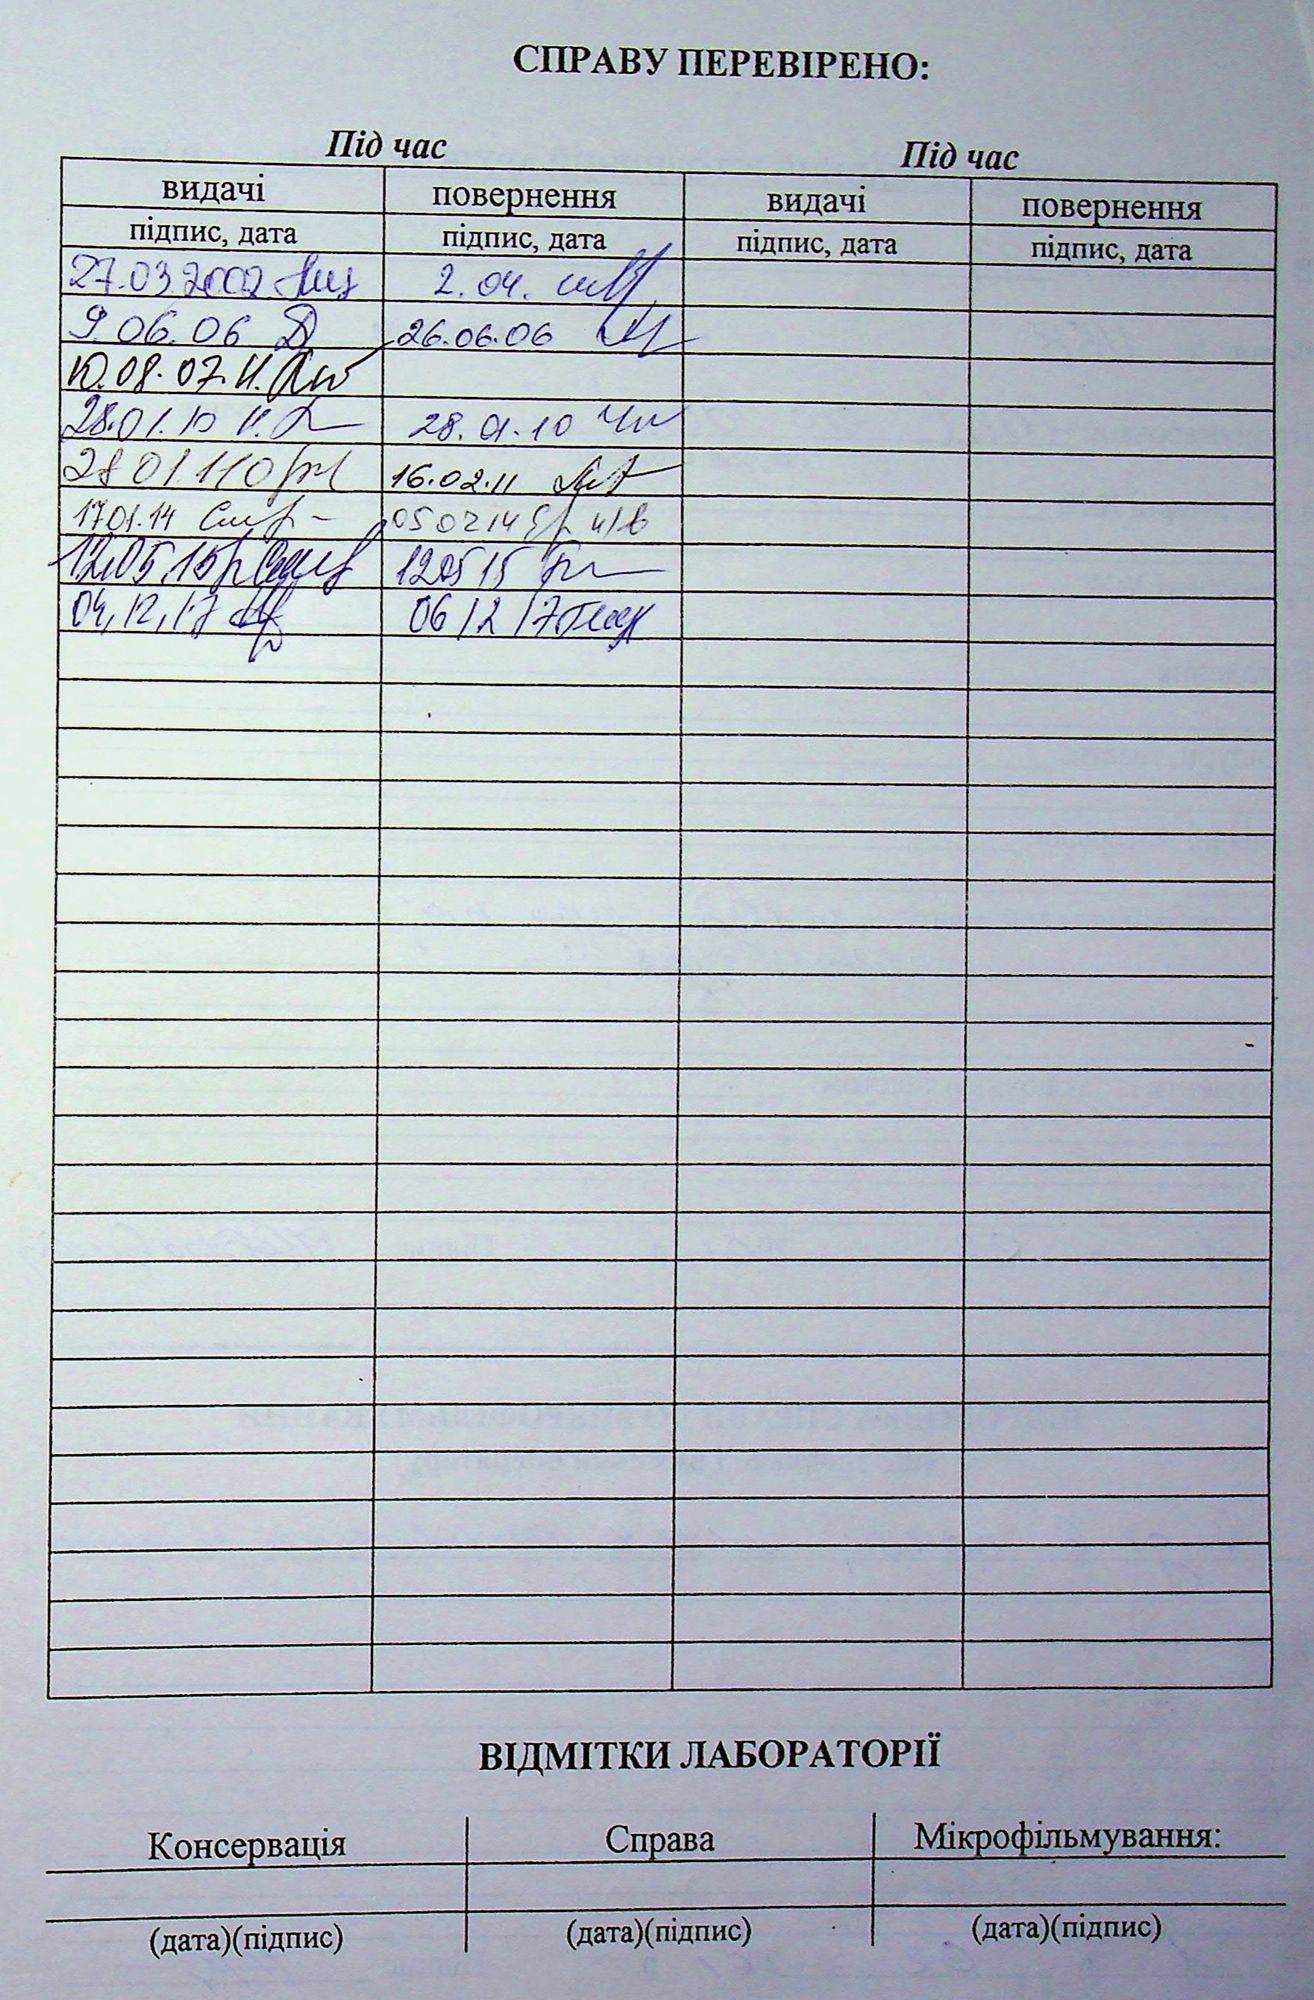 СПРАВУ ПЕРЕВІРЕНО:
Під час Під час
видачі повернення видачі повернення
підпис, дата підпис, дата підпис, дата підпис, дата
27.03.2002 2.04.
9.06.06 26.06.06
10.08.07.
28.01.10 28.01.10
28 01.11 16.02.11
17.01.14 05 02 14
12.05.15 12 05 15
04,12,17 06 12 17
ВІДМІТКИ ЛАБОРАТОРІЇ
Консервація Справа Мікрофільмування:
(дата)(підпис) (дата)(підпис) (дата)(підпис)